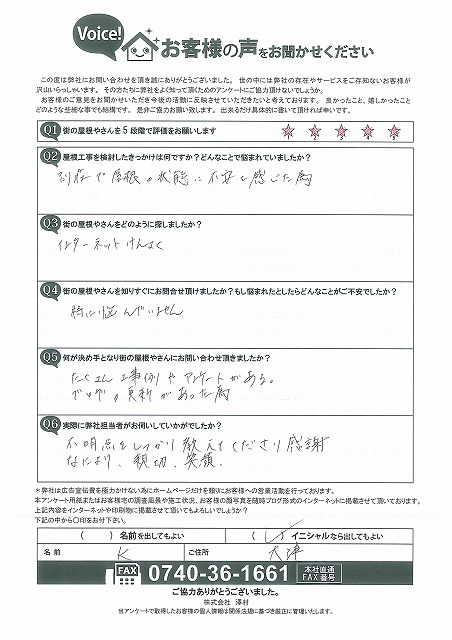 Voice!
お客様の声をお聞かせください
この度は弊社にお問い合わせを頂き誠にありがとうございました。世の中には弊社の存在やサービスをご存知ないお客様が
沢山いらっしゃいます。その方たちに弊社をよく知って頂くためのアンケートにご協力頂けないでしょうか。
お客様のご意見をお聞かせいただき今後の活動に反映させていただきたいと考えております。良かったこと、嬉しかったこと
どのような些細な事でも結構です。是非ご協力お願い致します。出来るだけ具体的に書いて頂ければ幸いです。
Q1 街の屋根やさんを5段階で評価をお願いします
1 2 3 4 5
Q2 屋根工事を検討したきっかけは何ですか?どんなことで悩まれていましたか?
屋根の状態に不安を感じた為
Q3 街の屋根やさんをどのように探しましたか?
インターネットけんさく
Q4 街の屋根やさんを知りすぐにお問合せ頂けましたか?もし悩まれたとしたらどんなことがご不安でしたか?
特に悩んでいません
Q5 何が決め手となり街の屋根やさんにお問い合わせ頂きましたか?
たくさん工事例やアンケートがある。
ブログの更新があった為
Q6 実際に弊社担当者がお伺いしていかがでしたか?
不明点をしっかり教えてくださり感謝
なにより、親切、笑顔、
*弊社は広告宣伝費を極力かけない為にホームページだけを頼りにお客様への営業活動を行っております。
本アンケート用紙またはお客様宅の調査風景や施工状況、お客様の顔写真を随時ブログ形式のインターネットに掲載させて頂いております。
上記内容をインターネットや印刷物に掲載させて頂いてもよろしいでしょうか?
下記の中から〇印をお付下さい。
( ) 名前を出してもよい ( ✓ ) イニシャルなら出してもよい
名前 K ご住所 大津
FAX 0740-36-1661 本社直通 FAX番号
ご協力ありがとうございました。
株式会社 澤村
当アンケートで取得したお客様の個人情報は関係法規に基づき厳正に管理いたします。